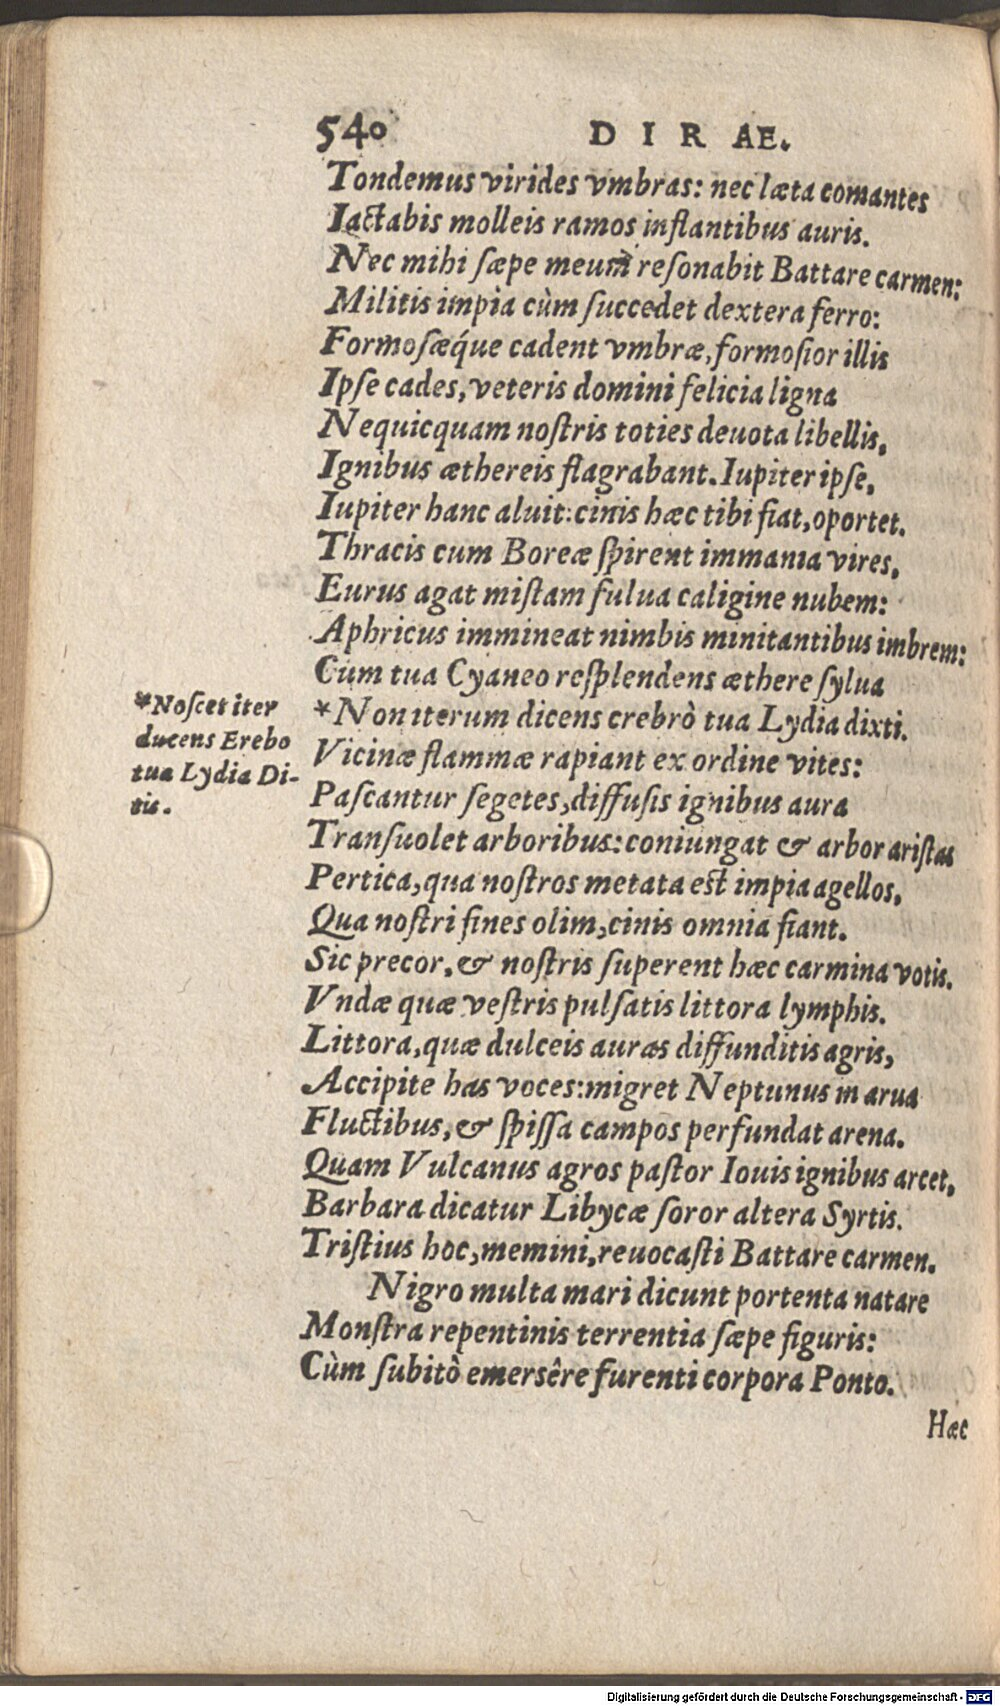 540 DIRAE.
Tondemus virides vmbras: nec læta comantes
Iactabis molleis ramos inflantibus auris.
Nec mihi sæpe meum resonabit Battare carmen:
Militis impia cùm succedet dextera ferro:
Formosæq́ue cadent vmbræ, formosior illis
Ipse cades, veteris domini felicia ligna
Nequicquam nostris toties deuota libellis,
Ignibus æthereis flagrabant. Iupiter ipse,
Iupiter hanc aluit: cinis hæc tibi fiat, oportet.
Thracis cum Boreæ spirent immania vires,
Eurus agat mistam fulua caligine nubem:
Aphricus immineat nimbis minitantibus imbrem:
Cùm tua Cyaneo resplendens æthere sylua
*Non iterum dicens crebrò tua Lydia dixti.
*Noscet iter
ducens Erebo
tua Lydia Di-
tis.
Vicinæ flammæ rapiant ex ordine vites:
Pascantur segetes, diffusis ignibus aura
Transuolet arboribus: coniungat & arbor aristas
Pertica, qua nostros metata est impia agellos,
Qua nostri fines olim, cinis omnia fiant.
Sic precor, & nostris superent hæc carmina votis.
Vndæ quæ vestris pulsatis littora lymphis.
Littora, quæ dulceis auras diffunditis agris,
Accipite has voces: migret Neptunus in arua
Fluctibus, & spissa campos perfundat arena.
Quam Vulcanus agros pastor Iouis ignibus arcet,
Barbara dicatur Libycæ soror altera Syrtis.
Tristius hoc, memini, reuocasti Battare carmen.
Nigro multa mari dicunt portenta natare
Monstra repentinis terrentia sæpe figuris:
Cùm subitò emersêre furenti corpora Ponto.
Hæc
Digitalisierung gefördert durch die Deutsche Forschungsgemeinschaft - DFG